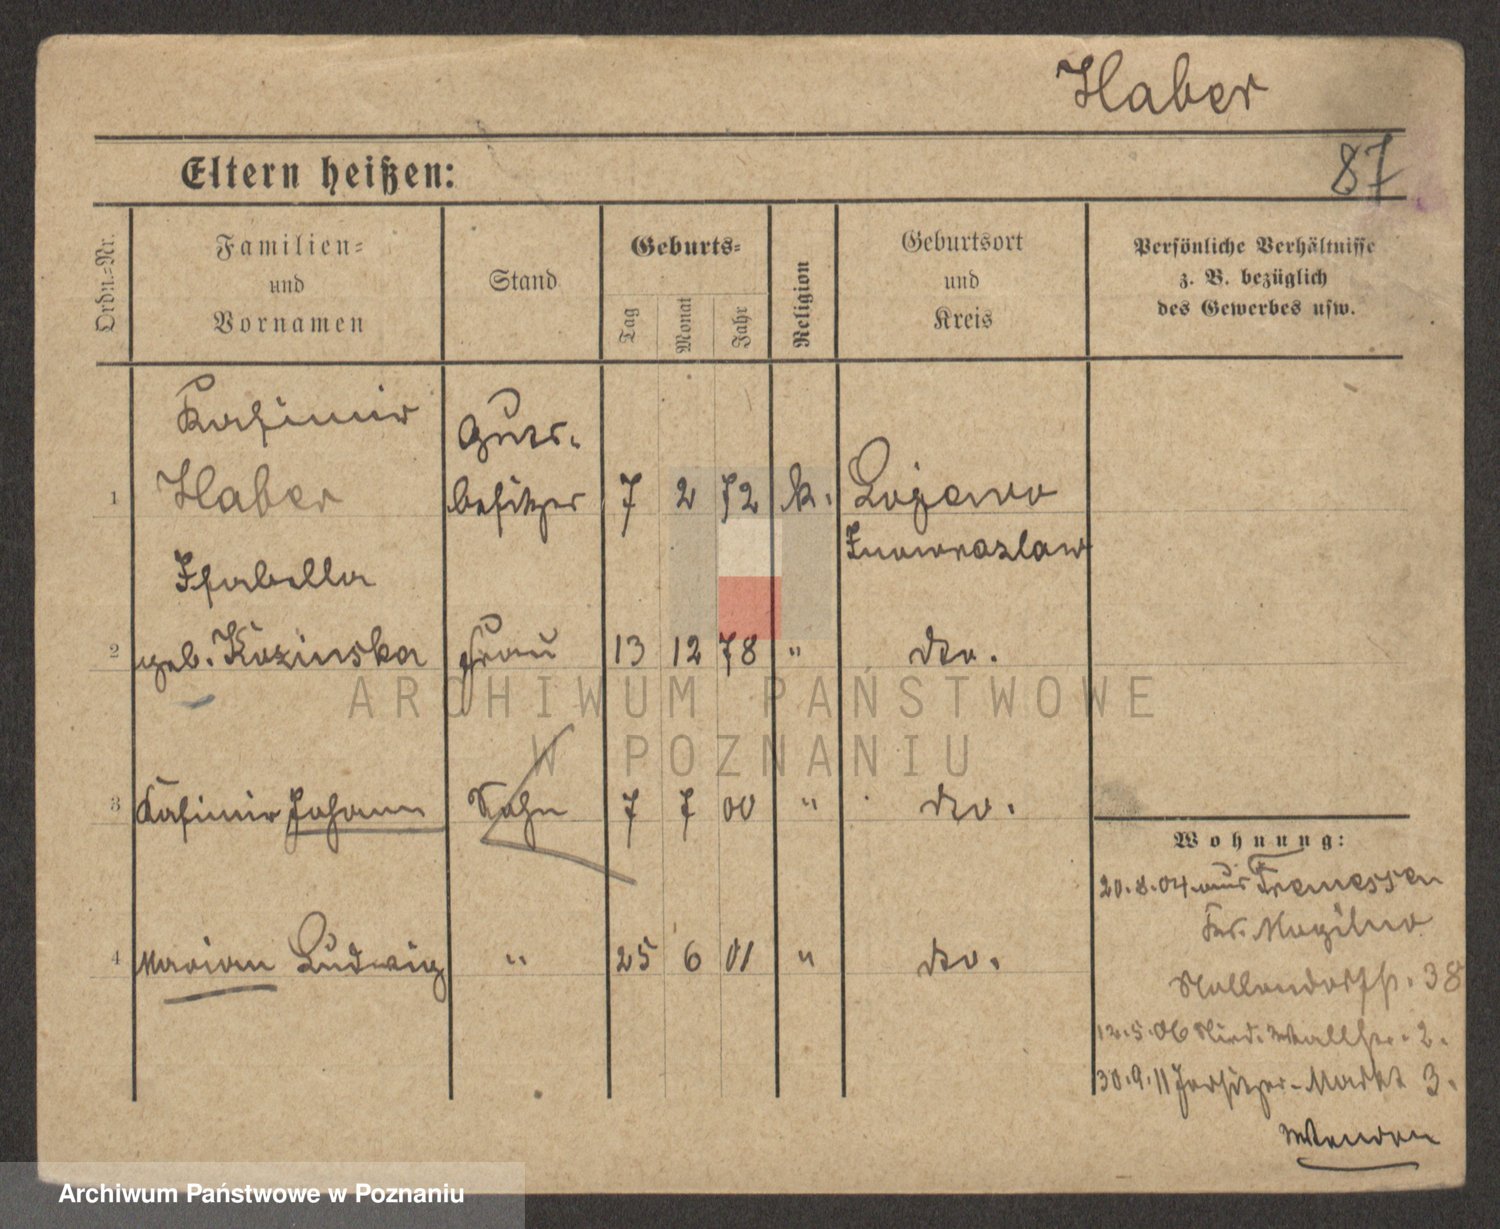 Haber
87
Eltern heißen:
Ordn.=Nr.
Familien=
und
Vornamen
Stand
Geburts=
Tag
Monat
Jahr
Religion
Geburtsort
und
Kreis
Persönliche Verhältnisse
z. B. bezüglich
des Gewerbes usw.
Kasimir Guts-
1 Haber besitzer 7 2 72 k. Lojewo
Inowrazlaw
Isabella
2 geb. Kozinska Frau 13 12 78 " dto.
3 Kasimir Johann Sohn 7 7 00 " dto.
4 Marian Ludwig " 25 6 01 " dto.
Wohnung:
20.8.04 aus Tremessen
Krs. Mogilno
Nollendorfstr. 38
12.5.06 Nied. Wallstr. 2.
30.9.11 Jersitzer-Markt 3.
Wenden
ARCHIWUM PAŃSTWOWE
W POZNANIU
Archiwum Państwowe w Poznaniu